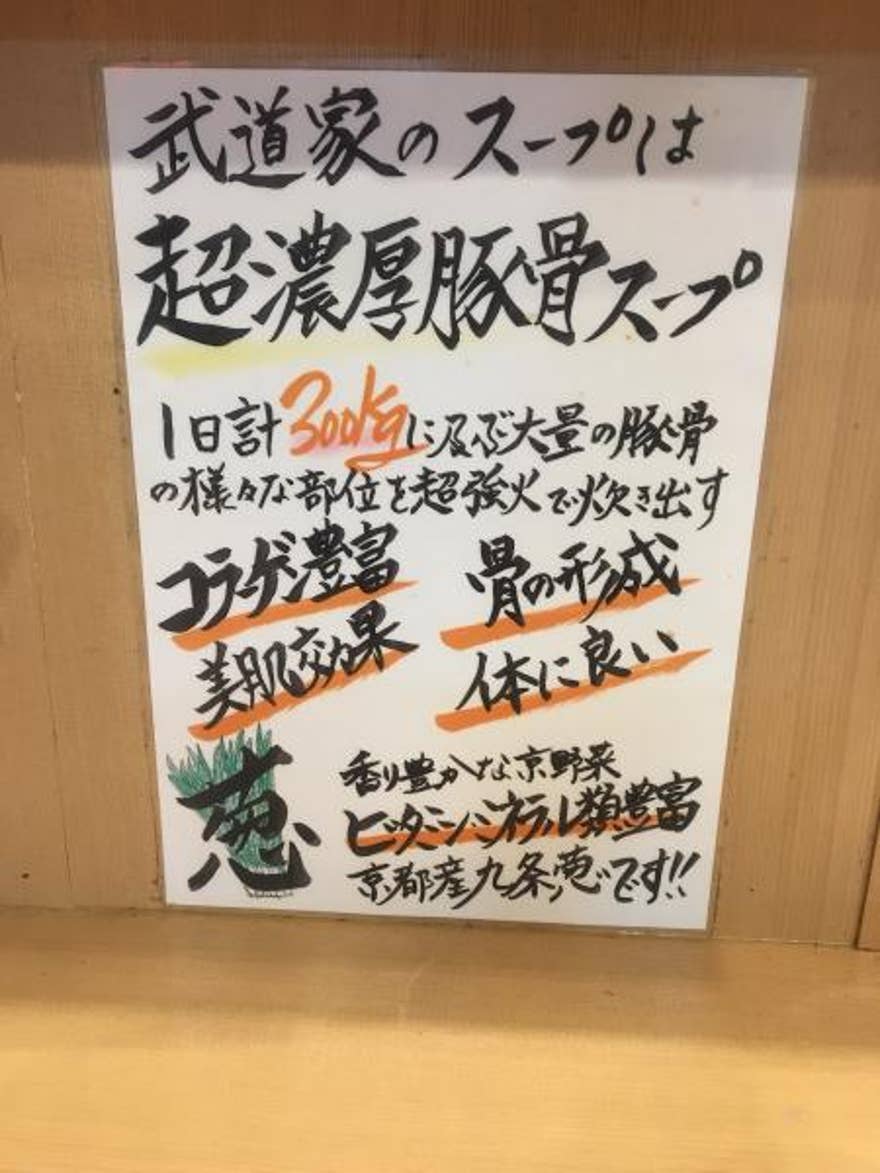 武道家のスープは
超濃厚豚骨スープ
1日計300kgに及ぶ大量の豚骨
の様々な部位を超強火で炊き出す
コラーゲン豊富
美肌効果
骨の形成
体に良い
葱
香り豊かな京野菜
ビタミン・ミネラル類豊富
京都産九条葱です!!